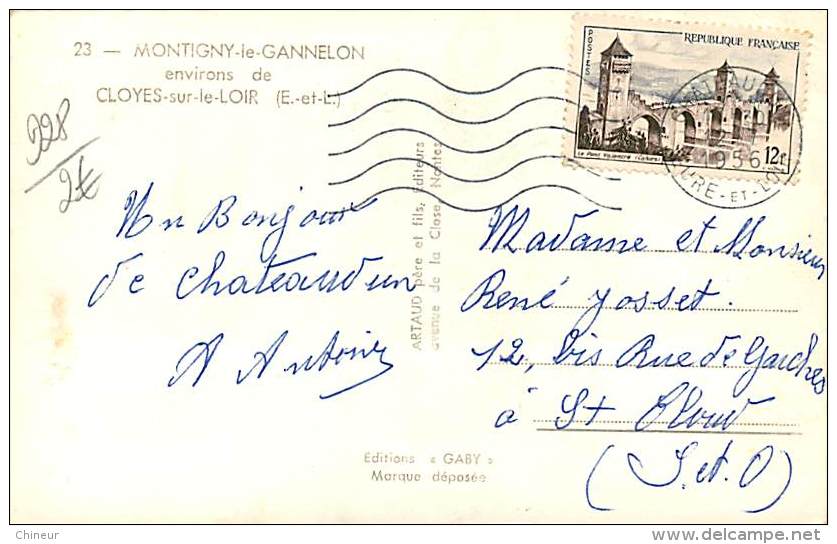 23 — MONTIGNY-le-GANNELON
environs de
CLOYES-sur-le-LOIR (E.-et-L.)
228
2€
Un Bonjour
de Chateaudun
A Antoine
ARTAUD père et fils, Éditeurs
avenue de la Close, Nantes
Editions « GABY »
Marque déposée
POSTES
REPUBLIQUE FRANÇAISE
Le Pont Valentré (Cahors)
12F
1956
EURE-ET-LOIR
Madame et Monsieur
René Josset.
12, bis Rue de Garches
à St Cloud
(S. et. O)
Chineur
www.delcampe.net